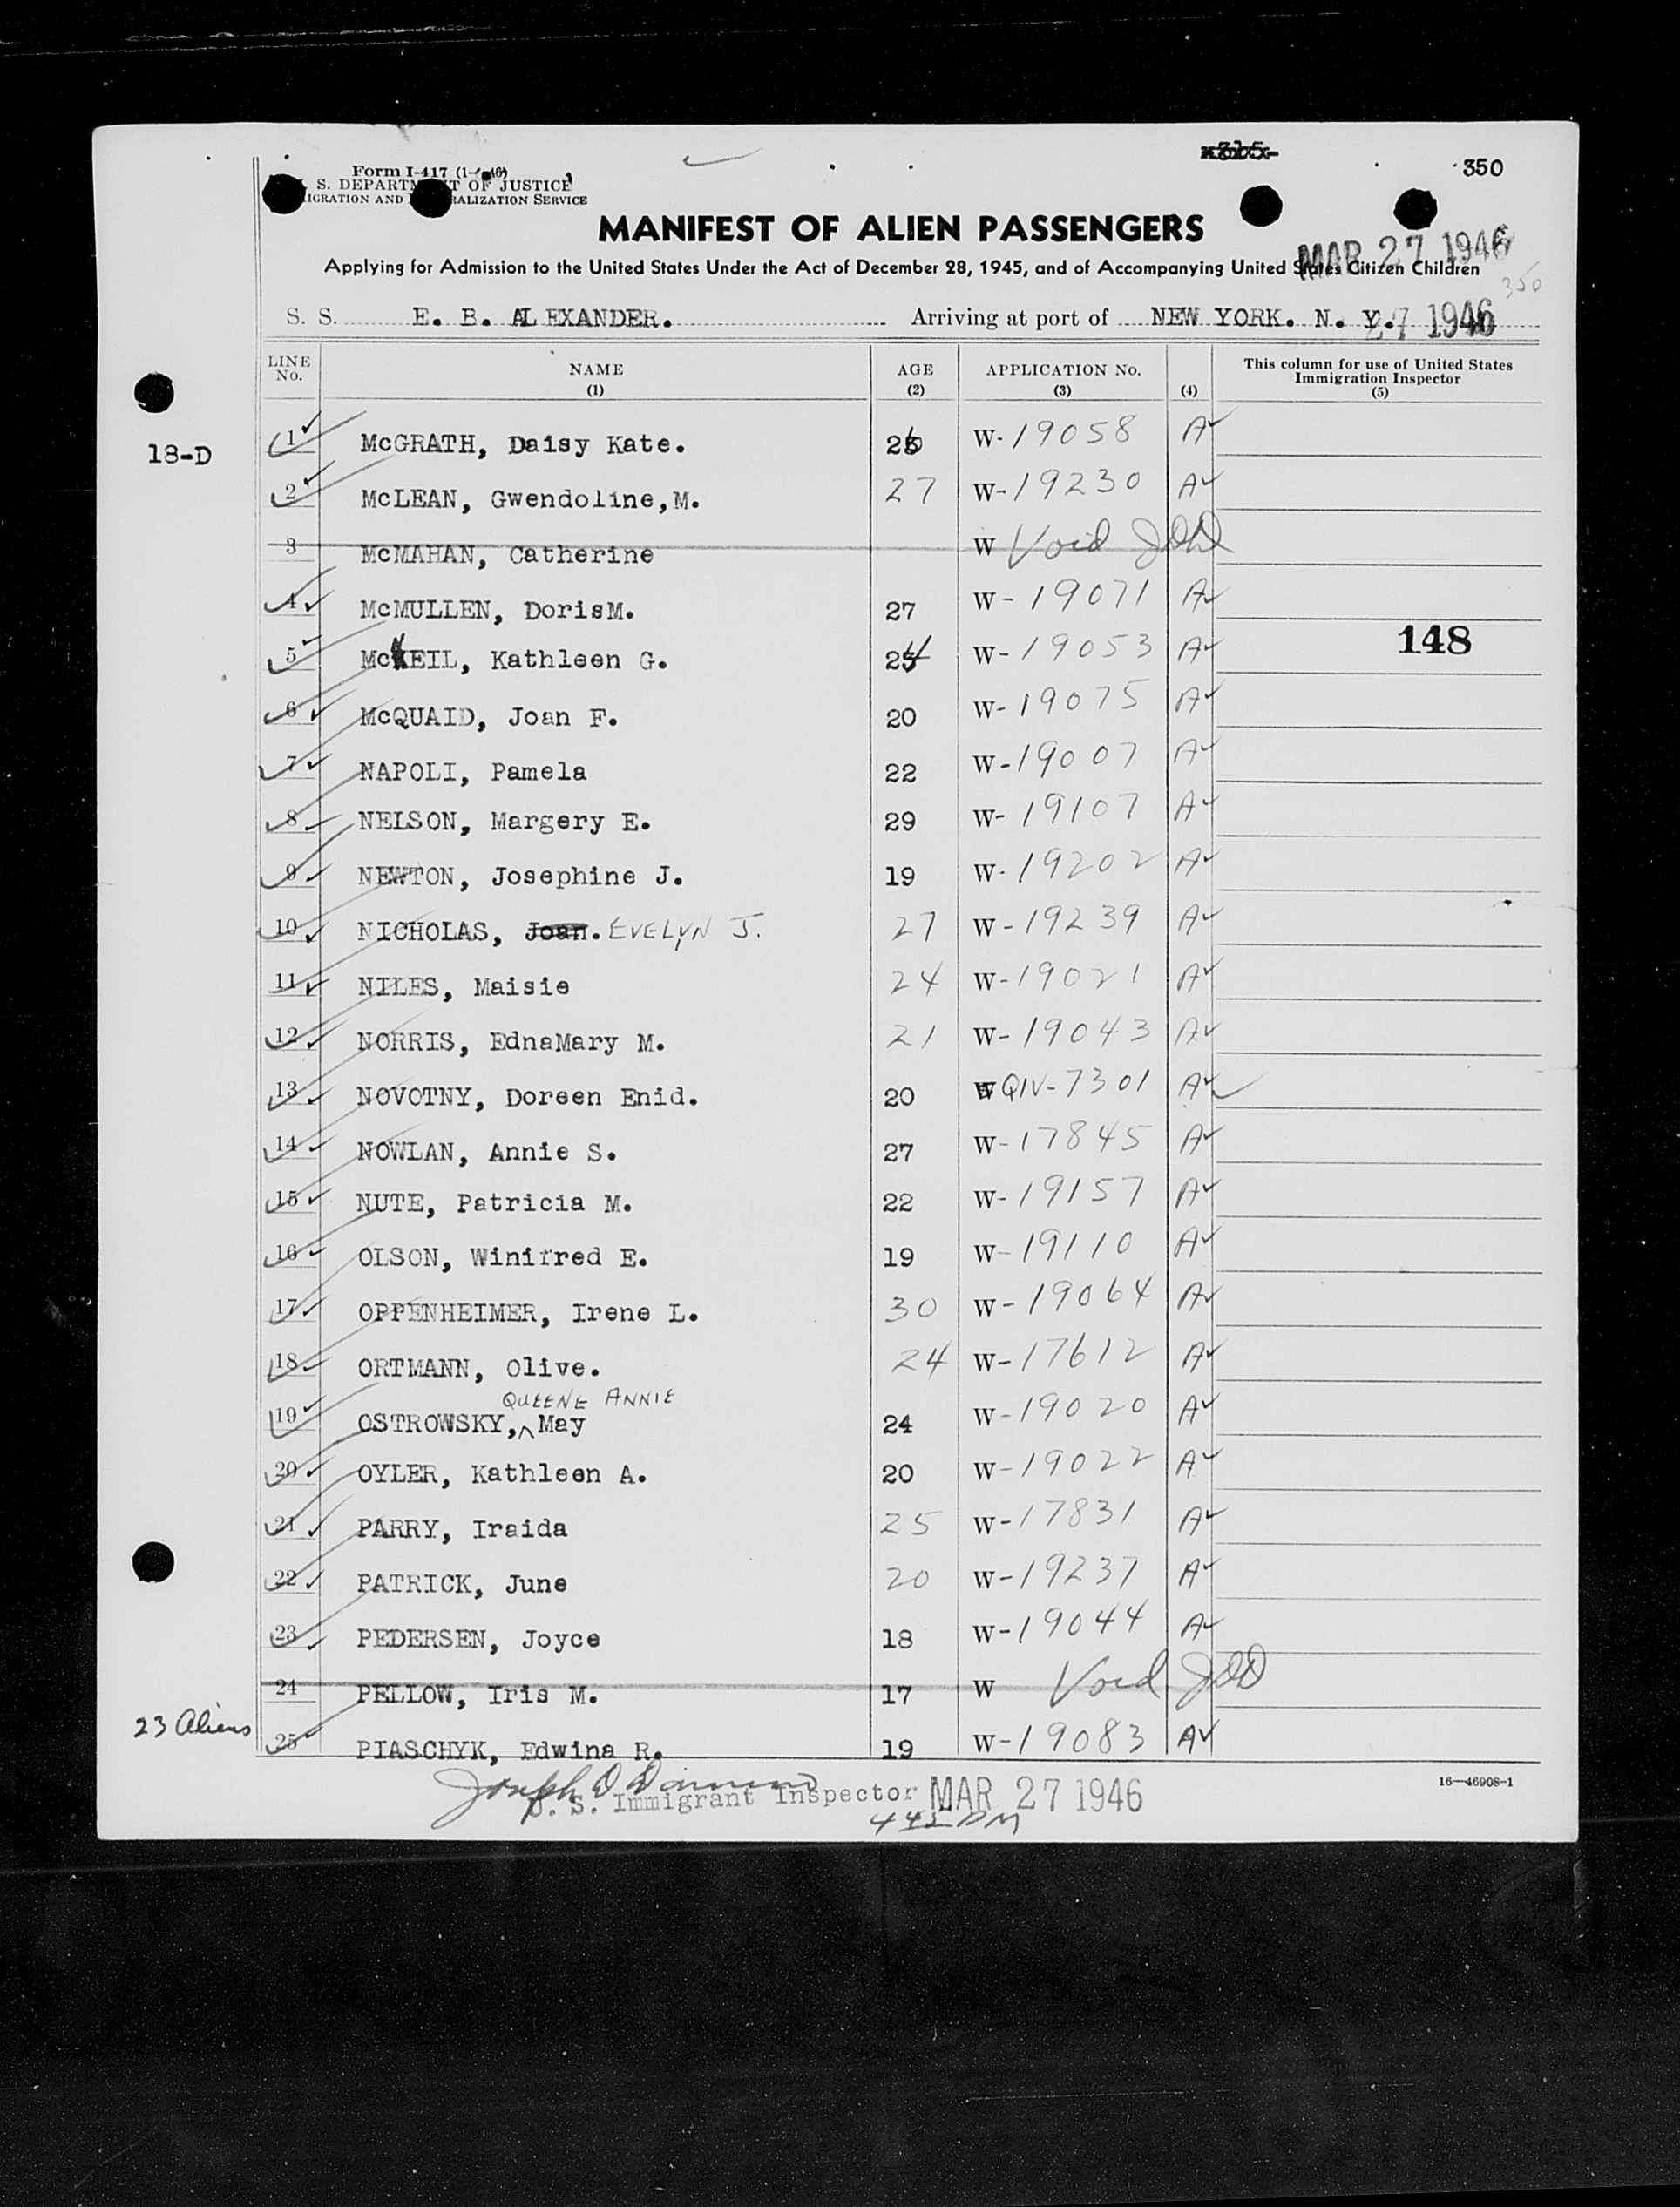 350
Form I-417
S. DEPARTMENT OF JUSTICE
IGRATION AND RALIZATION SERVICE
MANIFEST OF ALIEN PASSENGERS
MAR 27 1946
Applying for Admission to the United States Under the Act of December 28, 1945, and of Accompanying United States Citizen Children
350
S. S. E. B. ALEXANDER. Arriving at port of NEW YORK. N. Y. 27 1946
LINE No. NAME (1) AGE (2) APPLICATION No. (3) (4) This column for use of United States Immigration Inspector (5)
18-D
1 McGRATH, Daisy Kate. 26 W-19058 A
2 McLEAN, Gwendoline,M. 27 W-19230 A
3 McMAHAN, Catherine W Void
4 McMULLEN, DorisM. 27 W-19071 A
148
5 McNEIL, Kathleen G. 24 W-19053 A
6 McQUAID, Joan F. 20 W-19075 A
7 NAPOLI, Pamela 22 W-19007 A
8 NELSON, Margery E. 29 W-19107 A
9 NEWTON, Josephine J. 19 W-19202 A
10 NICHOLAS, Joan. EVELYN J. 27 W-19239 A
11 NILES, Maisie 24 W-19021 A
12 NORRIS, EdnaMary M. 21 W-19043 A
13 NOVOTNY, Doreen Enid. 20 W QIV-7301 A
14 NOWLAN, Annie S. 27 W-17845 A
15 NUTE, Patricia M. 22 W-19157 A
16 OLSON, Winifred E. 19 W-19110 A
17 OPPENHEIMER, Irene L. 30 W-19064 A
18 ORTMANN, Olive. 24 W-17612 A
QUEENE ANNIE
19 OSTROWSKY, May 24 W-19020 A
20 OYLER, Kathleen A. 20 W-19022 A
21 PARRY, Iraida 25 W-17831 A
22 PATRICK, June 20 W-19237 A
23 PEDERSEN, Joyce 18 W-19044 A
24 PELLOW, Iris M. 17 W Void
23 Aliens
25 PIASCHYK, Edwina R. 19 W-19083 A
16-46908-1
Joseph D
U. S. Immigrant Inspector MAR 27 1946
445 PM